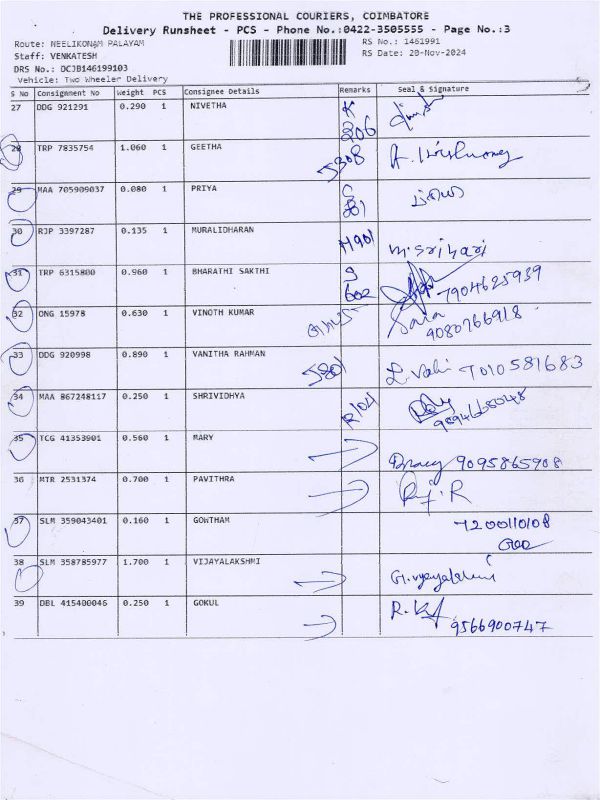 THE PROFESSIONAL COURIERS, COIMBATORE
Delivery Runsheet - PCS - Phone No.:0422-3505555 - Page No.:3
Route: NEELIKONAM PALAYAM
RS No.: 1461991
Staff: VENKATESH
RS Date: 20-Nov-2024
DRS No.: DCJB146199103
Vehicle: Two Wheeler Delivery
S No Consignment No Weight PCS Consignee Details Remarks Seal & Signature
27 DDG 921291 0.290 1 NIVETHA K 206
28 TRP 7835754 1.060 1 GEETHA 5308
29 MAA 705909037 0.080 1 PRIYA
30 RJP 3397287 0.135 1 MURALIDHARAN H901 M.Srihari
31 TRP 6315800 0.960 1 BHARATHI SAKTHI 602 7904625939
32 ONG 15978 0.630 1 VINOTH KUMAR Sara
9080766918
33 DDG 920998 0.890 1 VANITHA RAHMAN 7010581683
34 MAA 867248117 0.250 1 SHRIVIDHYA R104
35 TCG 41353901 0.560 1 MARY 9095865908
36 MTR 2531374 0.700 1 PAVITHRA
37 SLM 359043401 0.160 1 GOWTHAM 7200110108
38 SLM 358785977 1.700 1 VIJAYALAKSHMI
39 DBL 415400046 0.250 1 GOKUL
9566900747